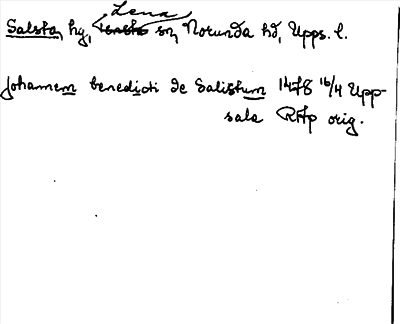 Salsta, hg, Lena sn, Norunda hd, Upps. l.
Johannem benedicti de Salistum 1478 16/4 Upp-
sala RAp orig.